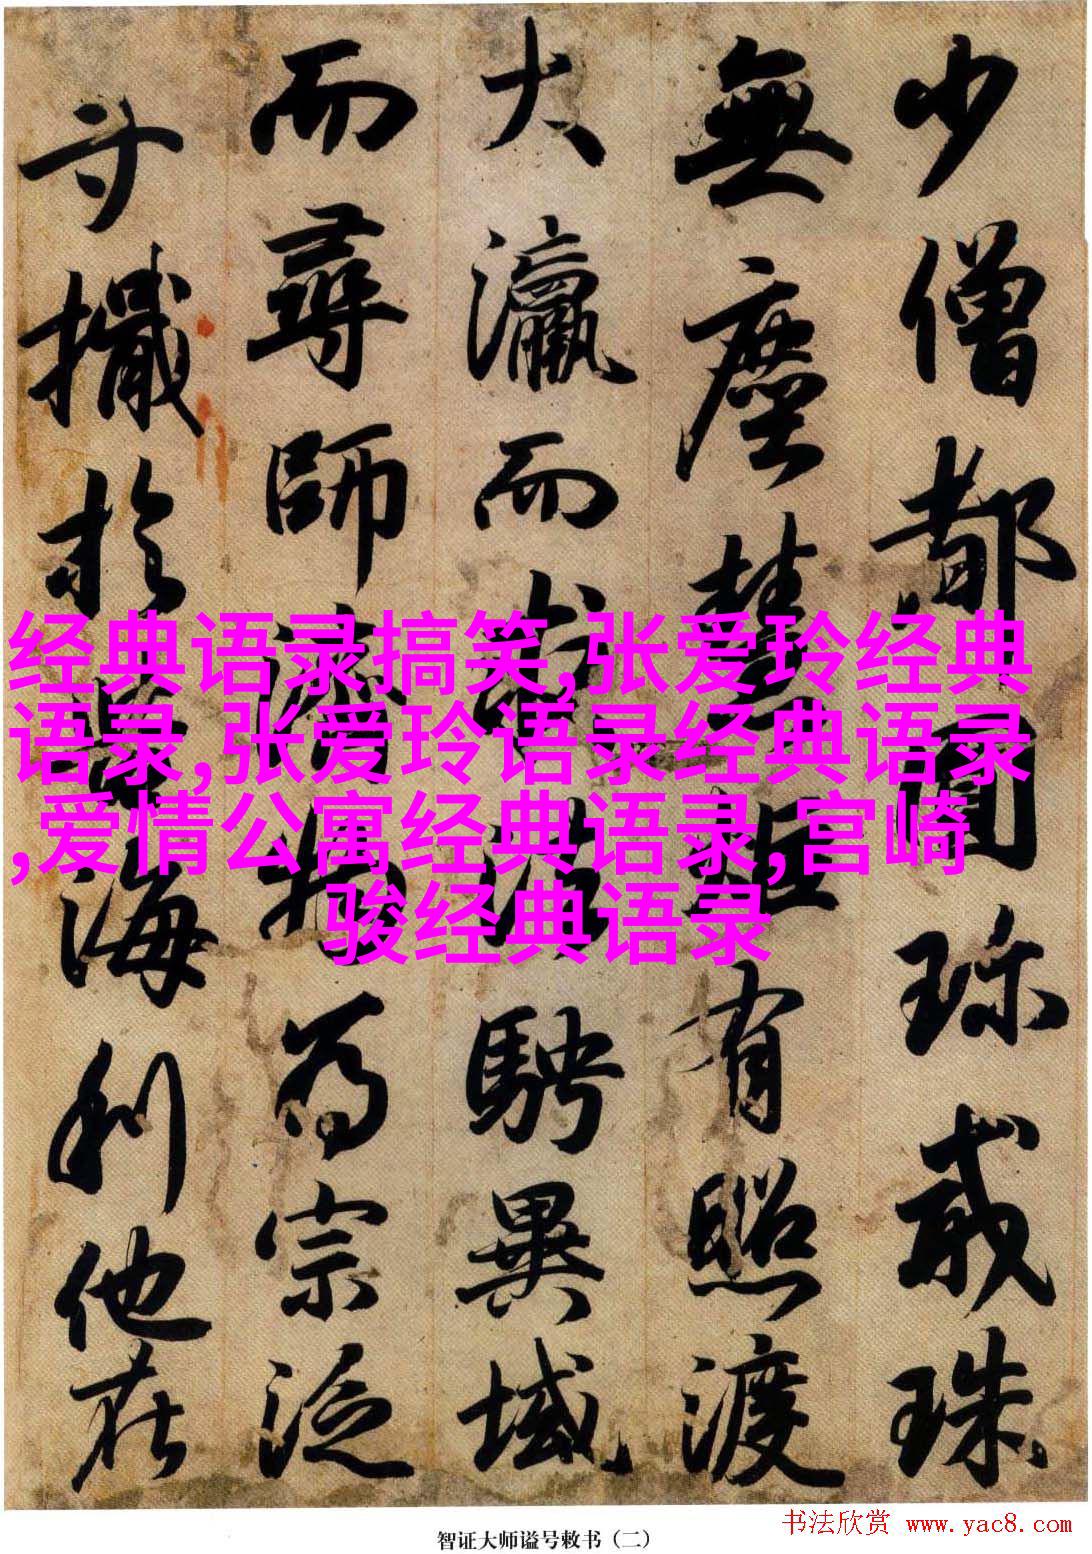 少僧都圓珎戒珠
無塵慧炬有照渡
大瀛而法騁異域
而尋師濟物為宗泛
寸檝於苦海利他在
经典语录搞笑,张爱玲经典
语录,张爱玲语录经典语录
,爱情公寓经典语录,宫崎
骏经典语录
智证大师谥号敕书（二）
书法欣赏 www.yac8.com